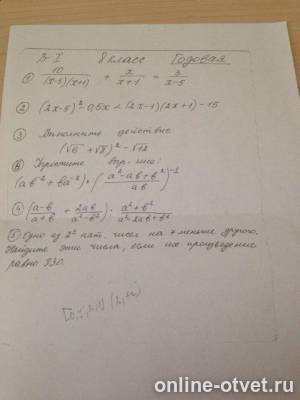 В-I 8 класс Годовая
① 10/((x-5)(x+1)) + x/(x+1) = 3/(x-5)
② (2x-5)² - 0,5x < (2x-1)(2x+1) - 15
③ Выполните действие
(√6 + √8)² - √12
⑥ Упростите выражение:
(ab⁻² + ba⁻²) · ((a²-ab+b²)/ab)⁻¹
④ ((a-b)/(a+b) + 2ab/(a²-b²)) : (a²+b²)/(a²-2ab+b²)
⑤ Одно из 2ˣ нат. чисел на 7 меньше другого.
Найдите эти числа, если их произведение
равно 330.
online-otvet.ru